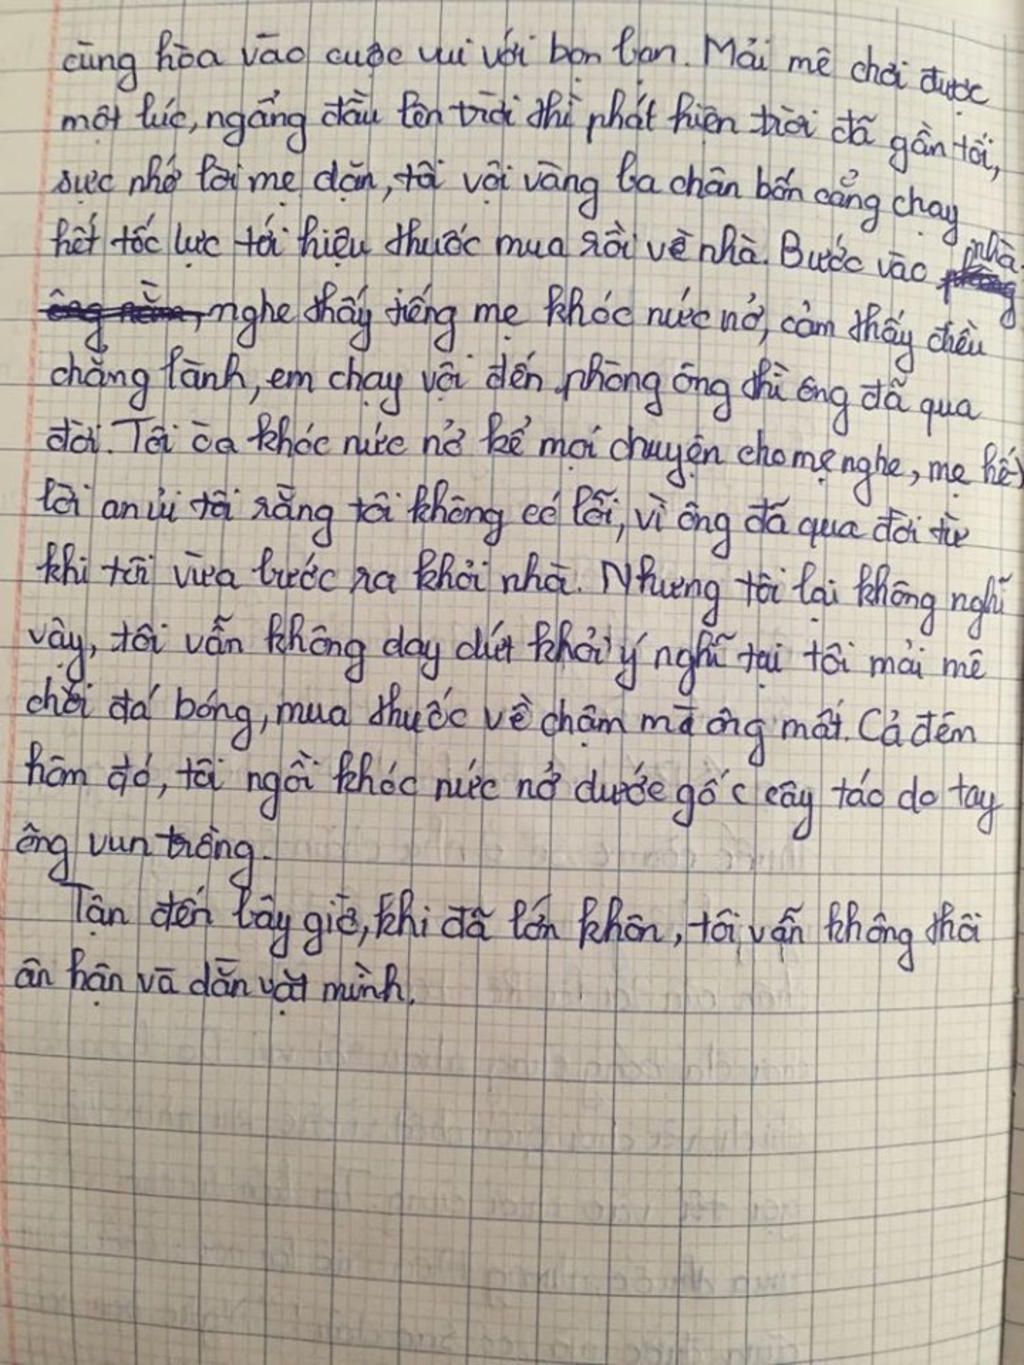 cùng hòa vào cuộc vui với bọn bạn. Mải mê chơi được
một lúc, ngẩng đầu lên trời thì phát hiện trời đã gần tối,
sực nhớ lời mẹ dặn, tôi vội vàng ba chân bốn cẳng chạy
hết tốc lực tới hiệu thuốc mua rồi về nhà. Bước vào nhà.
nghe thấy tiếng mẹ khóc nức nở, cảm thấy điều
chẳng lành, em chạy vội đến phòng ông thì ông đã qua
đời. Tôi òa khóc nức nở kể mọi chuyện cho mẹ nghe, mẹ hế
lời an ủi tôi rằng tôi không có lỗi, vì ông đã qua đời từ
khi tôi vừa bước ra khỏi nhà. Nhưng tôi lại không nghĩ
vậy, tôi vẫn không day dứt khỏi ý nghĩ tại tôi mải mê
chơi đá bóng, mua thuốc về chậm mà ông mất. Cả đêm
hôm đó, tôi ngồi khóc nức nở dưới gốc cây táo do tay
ông vun trồng.
Tận đến bây giờ, khi đã lớn khôn, tôi vẫn không thôi
ân hận và dằn vặt mình.